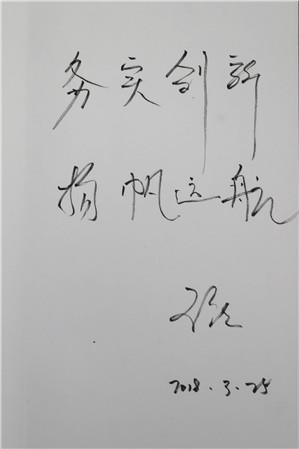 务实创新
扬帆远航
2018.3.25